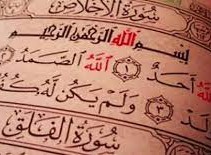 سُورَةُ الْإِخْلَاصِ
بِسْمِ اللَّهِ الرَّحْمَٰنِ الرَّحِيمِ
اللَّهُ أَحَدٌ ١ اللَّهُ الصَّمَدُ
لَدْ ٣ وَلَمْ يَكُن لَّهُ كُفُ
سُورَةُ الْفَلَقِ